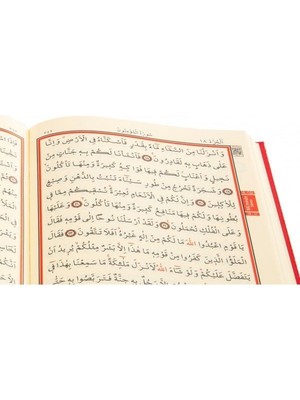 الجزء ١٨ سورة المؤمنون
وَاَنْزَلْنَا مِنَ السَّمَٓاءِ مَٓاءً بِقَدَرٍ فَاَسْكَنَّاهُ فِي الْاَرْضِ وَاِنَّا
عَلٰى ذَهَابٍ بِهٖ لَقَادِرُونَ فَاَنْشَأْنَا لَكُمْ بِهٖ جَنَّاتٍ مِنْ
نَخٖيلٍ وَاَعْنَابٍ لَكُمْ فٖيهَا فَوَاكِهُ كَثٖيرَةٌ وَمِنْهَا تَأْكُلُونَ
وَشَجَرَةً تَخْرُجُ مِنْ طُورِ سَيْنَٓاءَ تَنْبُتُ بِالدُّهْنِ وَصِبْغٍ
لِلْاٰكِلٖينَ وَاِنَّ لَكُمْ فِي الْاَنْعَامِ لَعِبْرَةً نُسْقٖيكُمْ مِمَّا فٖي
بُطُونِهَا وَلَكُمْ فٖيهَا مَنَافِعُ كَثٖيرَةٌ وَمِنْهَا تَأْكُلُونَ وَعَلَيْهَا
وَعَلَى الْفُلْكِ تُحْمَلُونَ وَلَقَدْ اَرْسَلْنَا نُوحًا اِلٰى قَوْمِهٖ فَقَالَ
يَا قَوْمِ اعْبُدُوا اللّٰهَ مَا لَكُمْ مِنْ اِلٰهٍ غَيْرُهُ اَفَلَا تَتَّقُونَ فَقَالَ
الْمَلَؤُا الَّذٖينَ كَفَرُوا مِنْ قَوْمِهٖ مَا هٰذَٓا اِلَّا بَشَرٌ مِثْلُكُمْ يُرٖيدُ اَنْ
يَتَفَضَّلَ عَلَيْكُمْ وَلَوْ شَٓاءَ اللّٰهُ لَاَنْزَلَ مَلٰٓئِكَةً مَا سَمِعْنَا بِهٰذَا فٖٓي